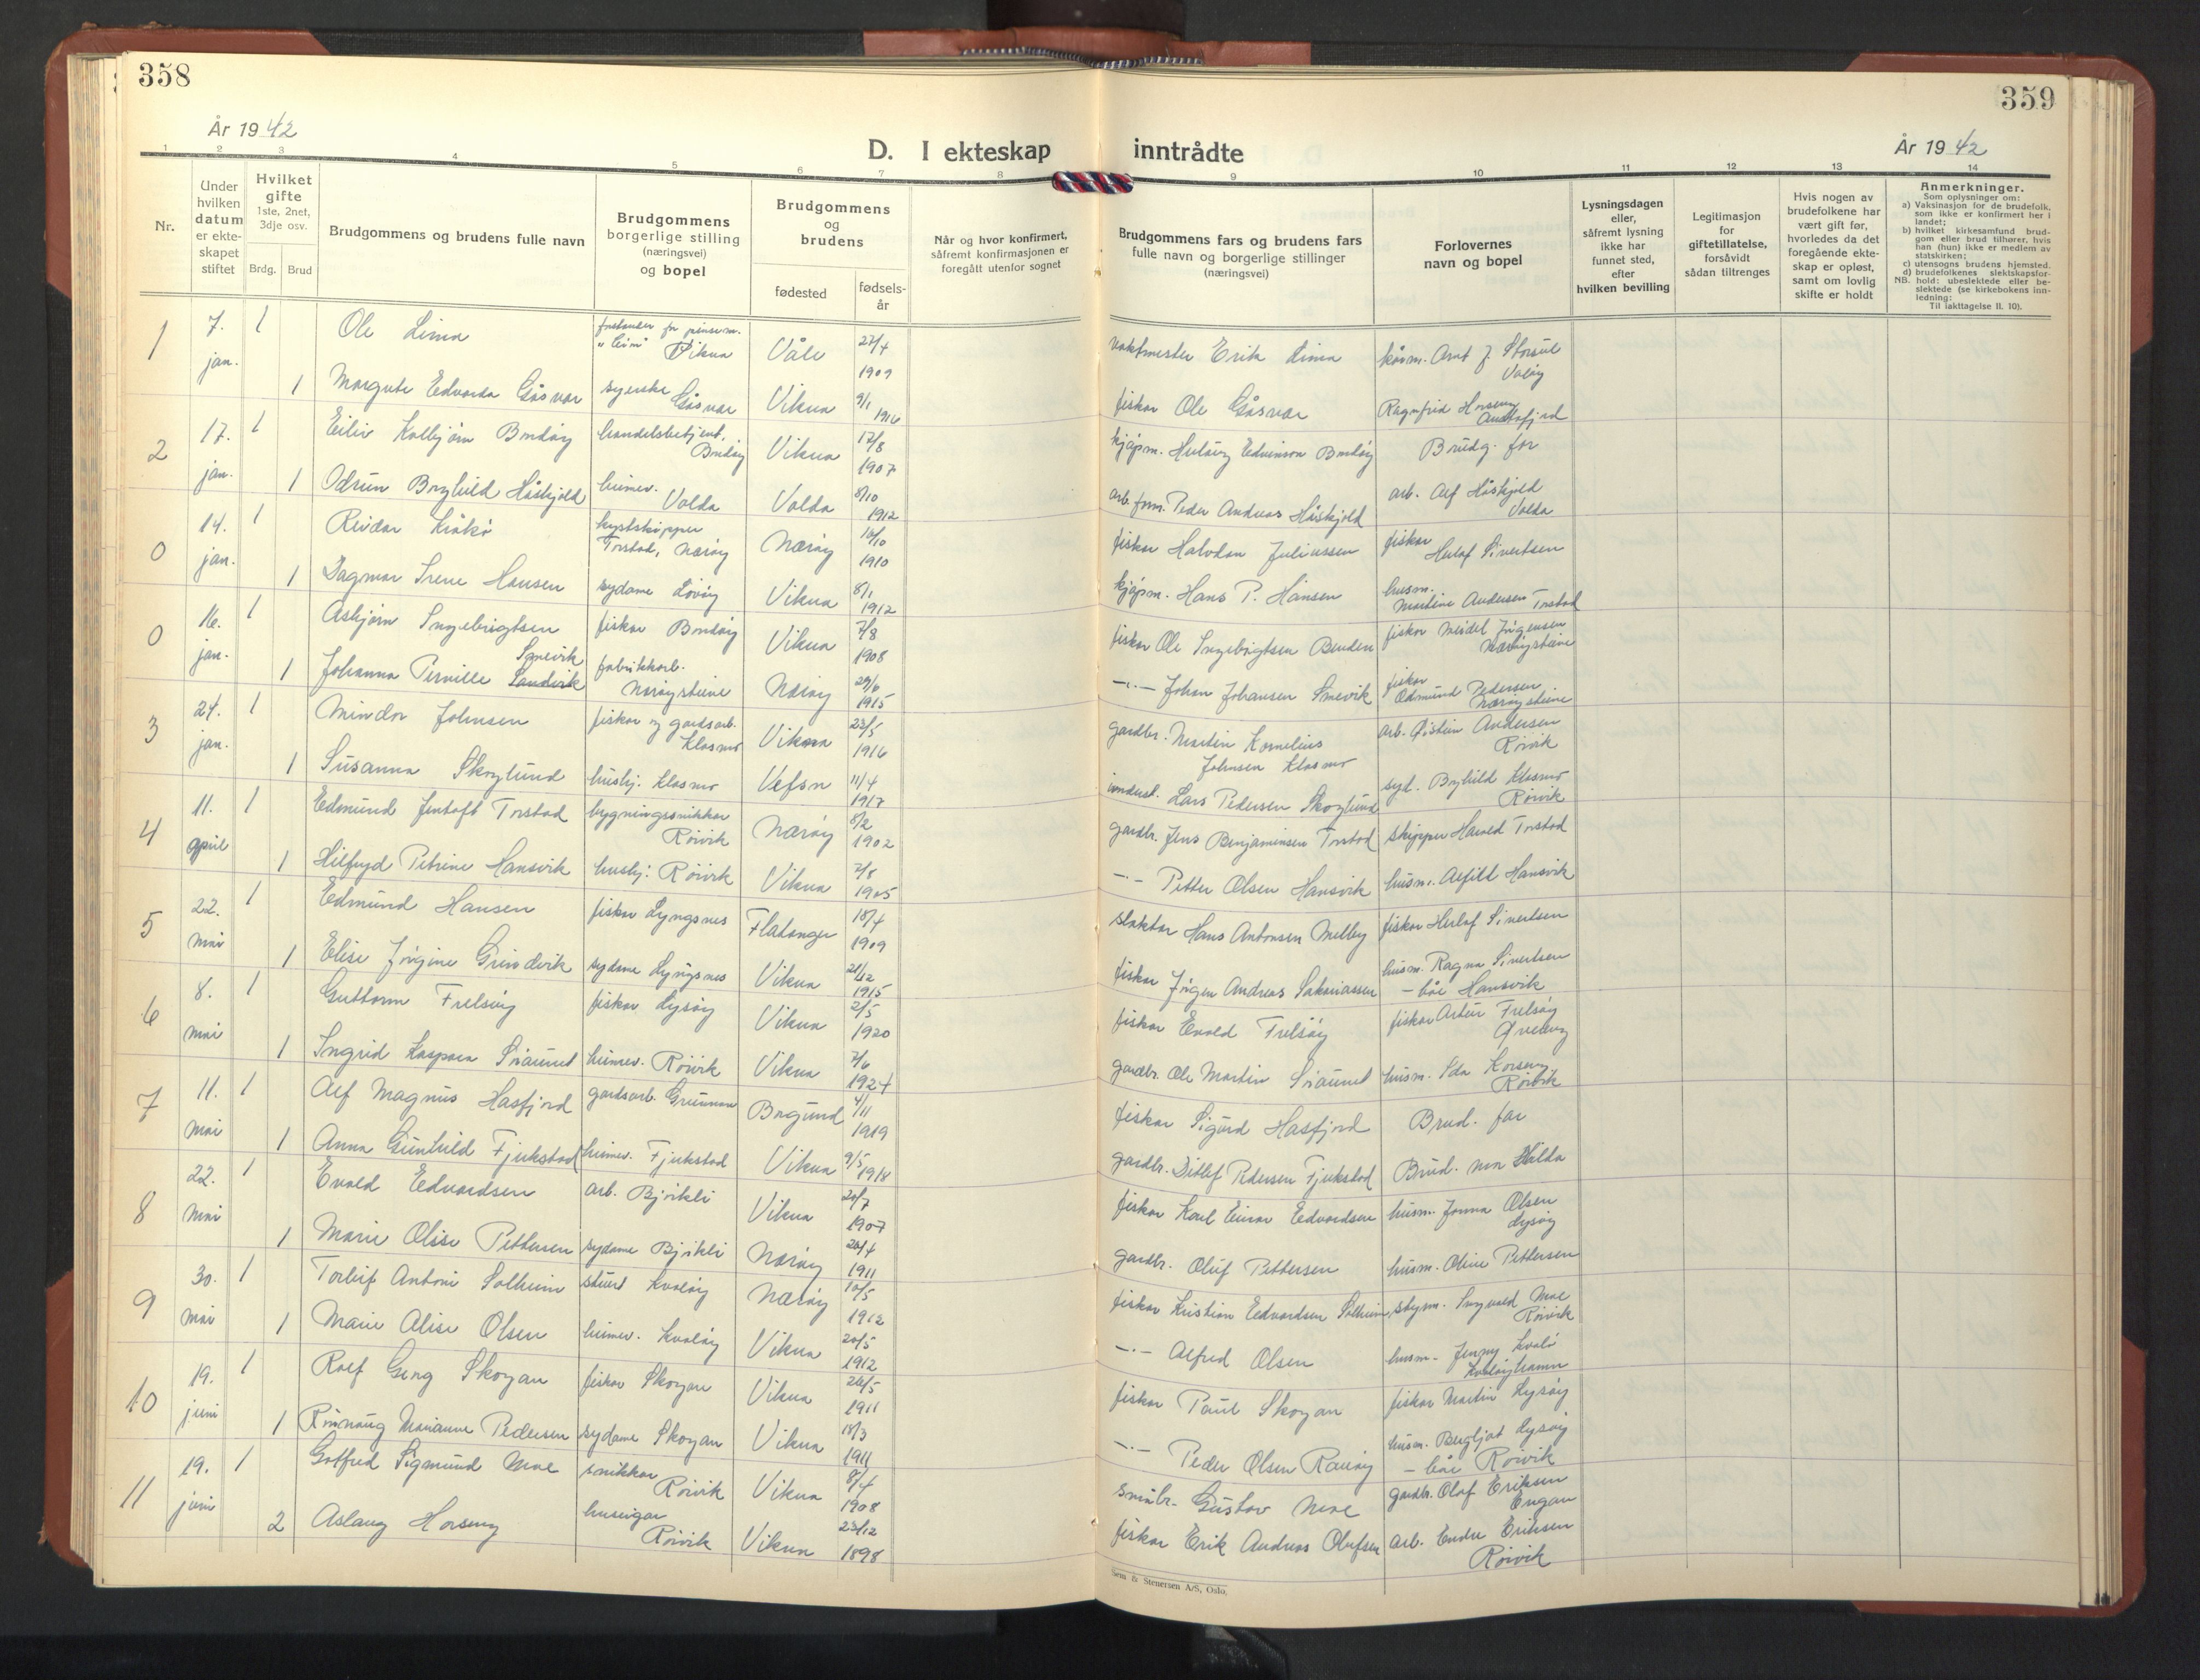 358
359
År 1942
År 1942
D. I ekteskap inntrådte
1 2 3 4 5 6 7 8 9 10 11 12 13 14
Nr.
Under hvilken datum er ekteskapet stiftet
Hvilket gifte
1ste, 2net, 3dje osv.
Brdg. Brud
Brudgommens og brudens fulle navn
Brudgommens borgerlige stilling (næringsvei) og bopel
Brudgommens og brudens
fødested
fødsels-år
Når og hvor konfirmert, såfremt konfirmasjonen er foregått utenfor sognet
Brudgommens fars og brudens fars fulle navn og borgerlige stillinger (næringsvei)
Forlovernes navn og bopel
Lysningsdagen eller, såfremt lysning ikke har funnet sted, efter hvilken bevilling
Legitimasjon for giftetillatelse, forsåvidt sådan tiltrenges
Hvis nogen av brudefolkene har vært gift før, hvorledes da det foregående ekteskap er opløst, samt om lovlig skifte er holdt
Anmerkninger.
Som oplysninger om:
a) Vaksinasjon for de brudefolk, som ikke er konfirmert her i landet;
b) hvilket kirkesamfund brudgom eller brud tilhører, hvis han (hun) ikke er medlem av statskirken;
c) utensogns brudens hjemsted.
d) brudefolkenes slektskapsforhold: ubeslektede eller beslektede (se kirkebokens innledning:
NB. Til iakttagelse II. 10).
1 7. jan. 1 Ole Lima Vikna Våle 27/4 1909 vaktmester Erik Lima Arnt J. Storsul Valøy
1 Margrete Edvarda Gåsvær syerske Gåsvær Vikna 9/1 1916 fisker Ole Gåsvær Ragnfrid Horseng
2 17. jan. 1 Eiliv Kolbjørn Bondøy handelsbetjent, Bondøy Vikna 17/8 1907 kjøpm. Edvinson Bondøy Brudg. far
1 Odrun Borghild Håskjold heimev. Volda Volda 8/10 1912 arb. form. Peder Andreas Håskjold arb. Alf Håskjold Volda
0 14. jan. 1 Reidar Kråkø kystskipper Torstad, Nærøy Nærøy 10/10 1910 fisker Halvdan Juliussen fisker Herlof Sivertsen
1 Dagmar Irene Hansen sydame Lovøy Vikna 8/1 1912 kjøpm. Hans P. Hansen husm. Martine Andersen Torstad
0 16. jan. 1 Asbjørn Ingebrigtsen fisker Bondøy Vikna 7/8 1908 fisker Ole Ingebrigtsen Benden fisker Meidel Jørgensen Nærøysteine
1 Johanna Pernille Smevik Sandvik fabrikkarb. Nærøysteine Nærøy 29/6 1915 —·— Johan Johansen Smevik fisker Edmund Pedersen Nærøysteine
3 24. jan. 1 Mindor Johnsen fisker og gardsarb. Klasmo Vikna 23/5 1916 gardbr. Martin Kornelius Johnsen Klasmo arb. Øistein Andersen Rørvik
1 Susanna Skoglund hushj. Klasmo Vefsn 11/4 1917 Lars Pedersen Skoglund syd. Borghild Klasmo Rørvik
4 11. april 1 Edmund Jentoft Torstad bygningssnikker Rørvik Nærøy 8/2 1902 gardbr. Jens Benjaminsen Torstad skipper Harald Torstad
1 Hilfryd Petrine Hansvik hushj. Rørvik Vikna 7/8 1905 —·— Petter Olsen Hansvik husm. Alfild Hansvik
5 22. mai 1 Edmund Hansen fisker Lyngsnes Flatanger 18/4 1909 slakter Hans Antonsen Melby fisker Herlof Sivertsen
1 Elise Jørgine Grindvik sydame Lyngsnes Vikna 21/12 1915 fisker Jørgen Andreas Sakariassen husm. Ragna Sivertsen – båe Hansvik
6 8. mai 1 Guttorm Frelsøy fisker Lysøy Vikna 2/5 1920 fisker Evald Frelsøy fisker Artur Frelsøy
1 Ingrid Kaspara Sraunet heimev. Rørvik Vikna 7/6 1924 gardbr. Ole Martin Sraunet husm. Ida Korseng Rørvik
7 11. mai 1 Alf Magnus Hasfjord gardsarb. Borgund 4/11 1919 fisker Sigurd Hasfjord Brud. far
1 Anna Gunhild Fjukstad heimev. Fjukstad Vikna 9/5 1918 gardbr. Ditlef Pedersen Fjukstad Brud. mor Hilda
8 22. mai 1 Evald Edvardsen arb. Bjørkli Vikna 20/7 1907 fisker Karl Einar Edvardsen husm. Jonna Olsen Lysøy
1 Marie Olise Pettersen sydame Bjørkli Nærøy 28/4 1911 gardbr. Oluf Pettersen husm. Oline Pettersen
9 30. mai 1 Torleif Antoni Solheim stuert Kvaløy Nærøy 10/5 1912 fisker Kristian Edvardsen Solheim Ingvald Moe Rørvik
1 Marie Alise Olsen heimev. Kvaløy Vikna 20/5 1912 —·— Alfred Olsen husm. Jenny Kvalø Kvaløyhamn
10 19. juni 1 Rolf Georg Skogan fisker Skogan Vikna 26/5 1911 fisker Paul Skogan fisker Martin Lysøy
1 Rønnaug Marianne Pedersen sydame Skogan Vikna 18/3 1911 —·— Peder Olsen Ramøy husm. Bergljot Lysøy – båe Rørvik
11 19. juni 1 Gotfred Sigmund Moe snikker Rørvik Vikna 8/4 1908 småbr. Gustav Moe gardbr. Olaf Eriksen Engan
2 Aslaug Horseng huseigar Rørvik Vikna 23/12 1898 fisker Erik Andreas Olufsen arb. Endre Eriksen Rørvik
Sem & Stenersen A/S, Oslo.